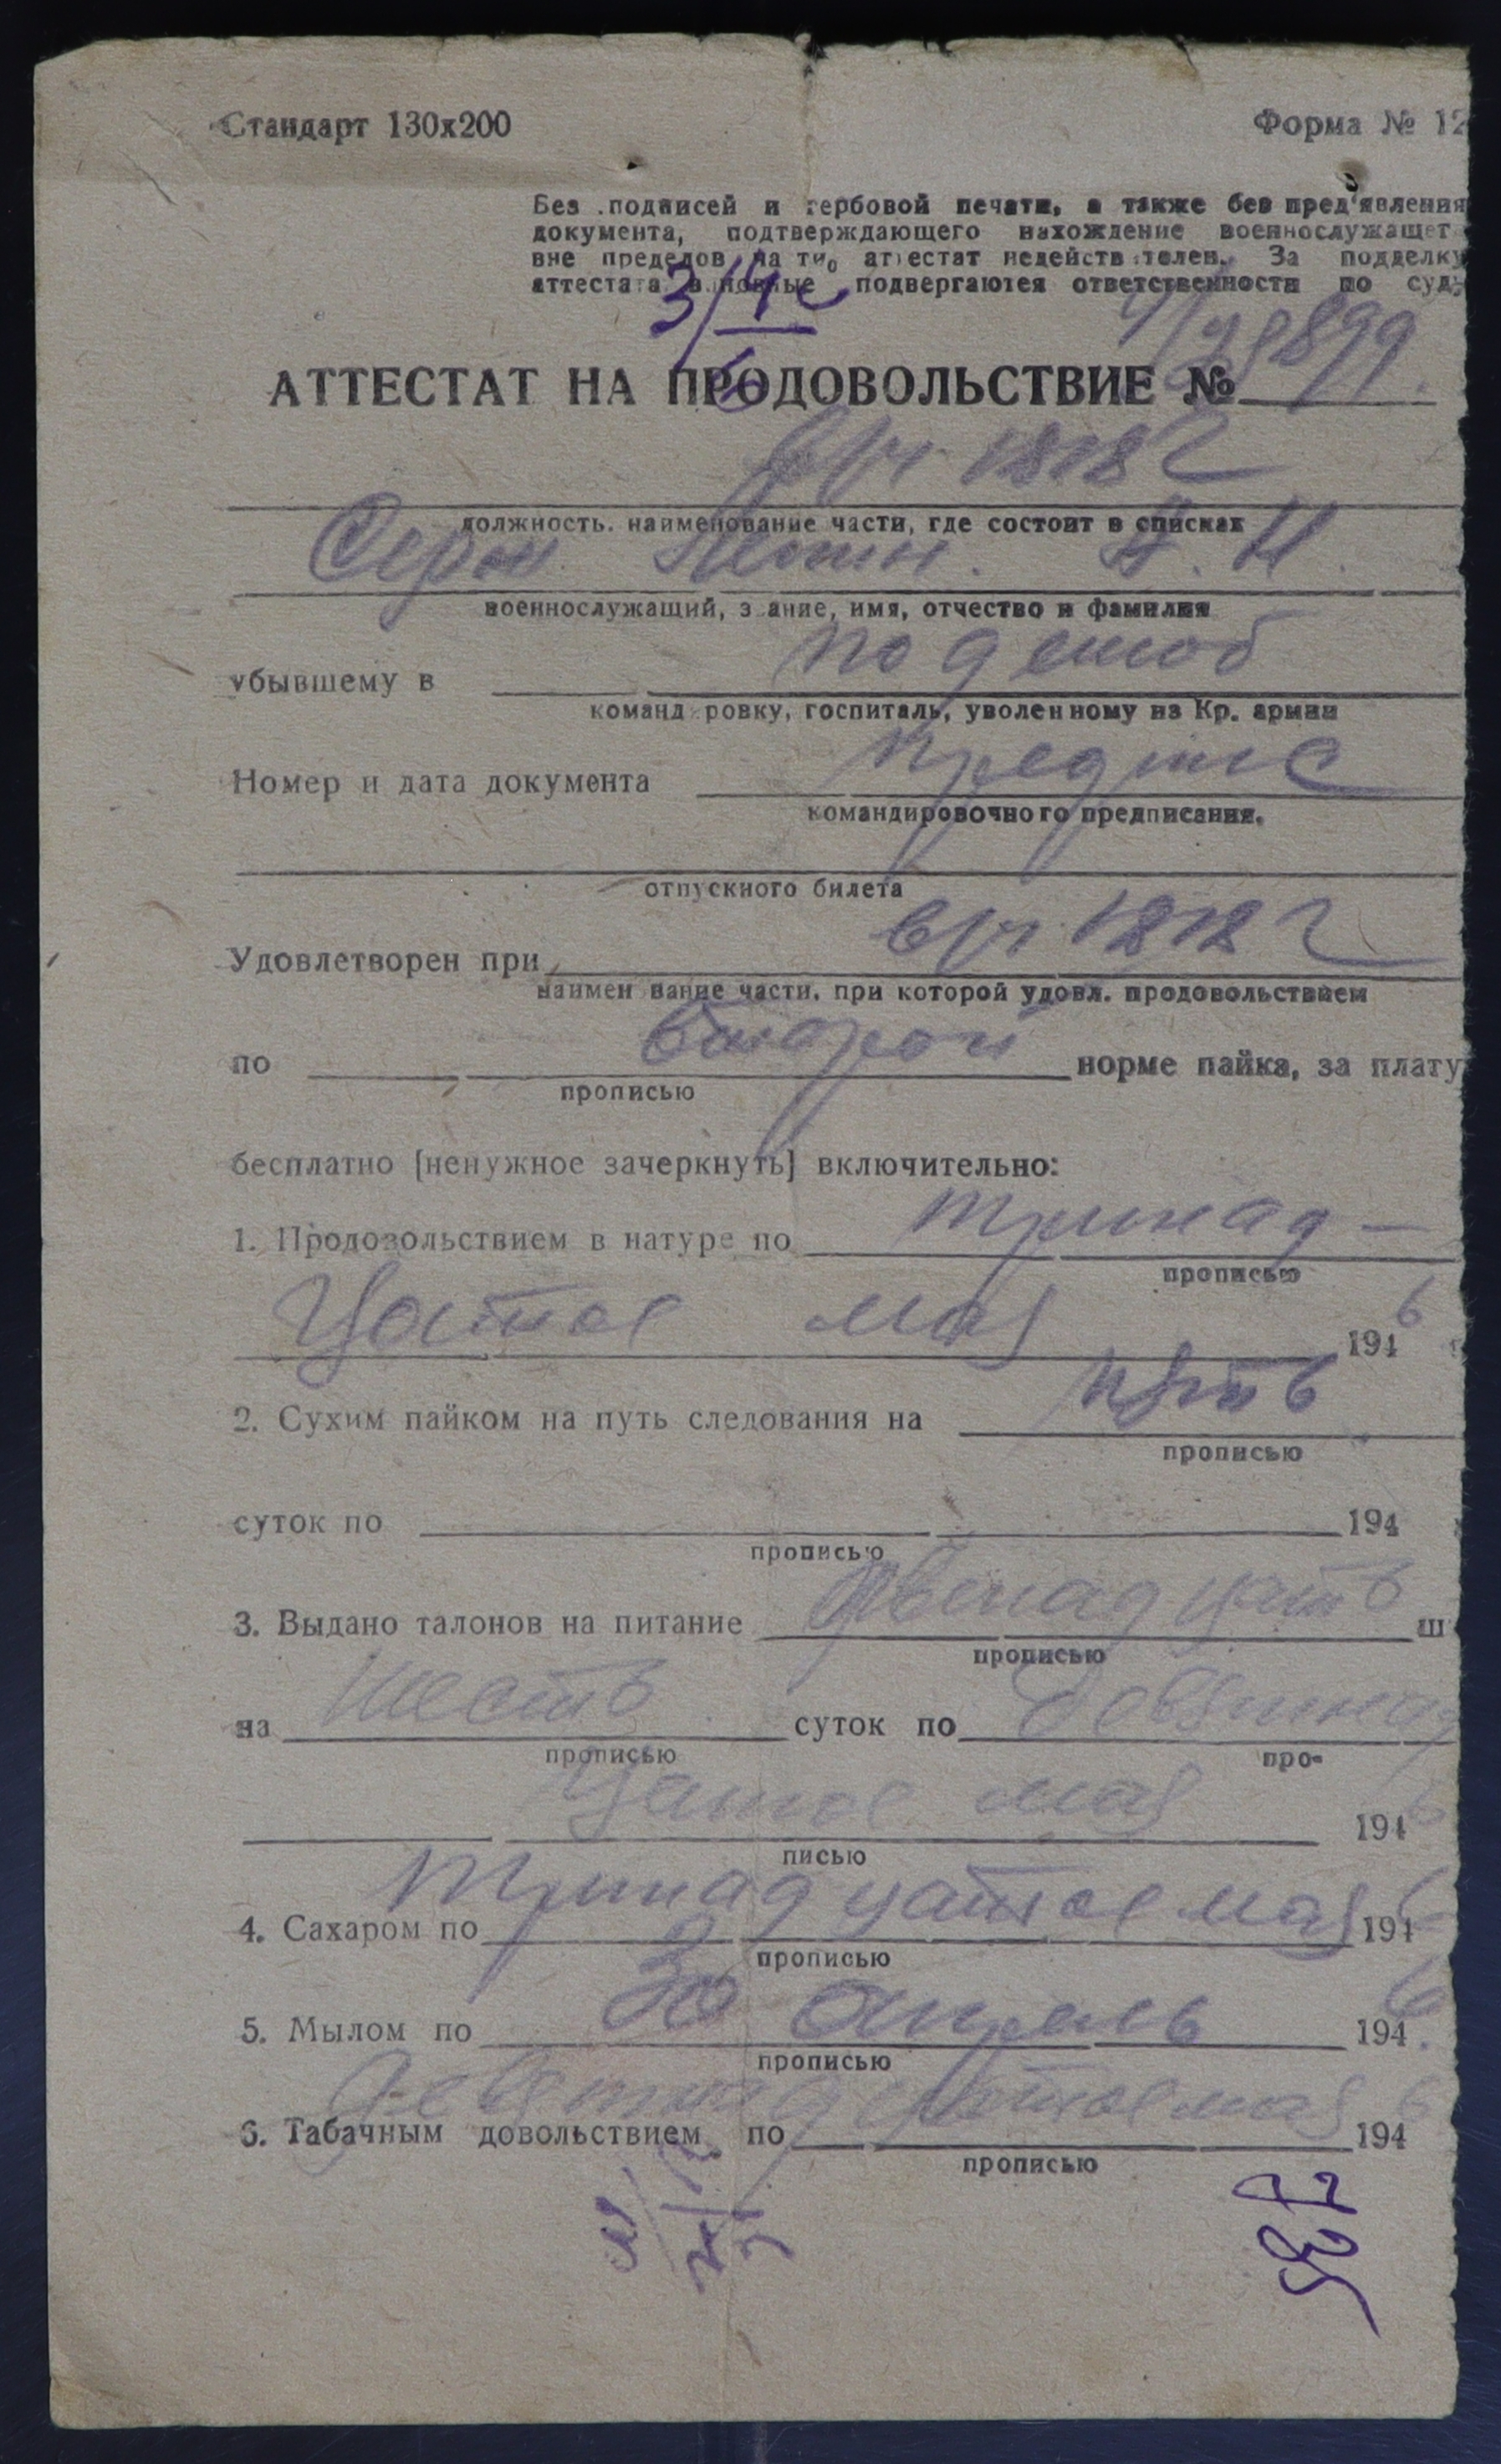 Стандарт 130х200
Форма № 12
Без подписей и гербовой печати, а также без пред'явления
документа, подтверждающего нахождение военнослужащег
вне пределов части, аттестат недействителен. За подделку
аттестата виновные подвергаются ответственности по суду
3/4
АТТЕСТАТ НА ПРОДОВОЛЬСТВИЕ №
в/ч 18182
должность, наименование части, где состоит в списках
военнослужащий, звание, имя, отчество и фамилия
по демоб
убывшему в
командировку, госпиталь, уволенному из Кр. армии
Номер и дата документа
командировочного предписания.
отпускного билета
Удовлетворен при в/ч 18182
наименование части, при которой удовл. продовольствием
по второй норме пайка, за плату
прописью
бесплатно [ненужное зачеркнуть] включительно:
1. Продовольствием в натуре по тринад-
прописью
цатое мая 1946
2. Сухим пайком на путь следования на пять
прописью
суток по 194
прописью
3. Выдано талонов на питание двенадцать ш
прописью
на шесть суток по девятнад
прописью про-
цатое мая 1946
писью
4. Сахаром по тринадцатое мая 1946
прописью
5. Мылом по 30 апрель 1946
прописью
6. Табачным довольствием по девятнадцатое мая 1946
прописью